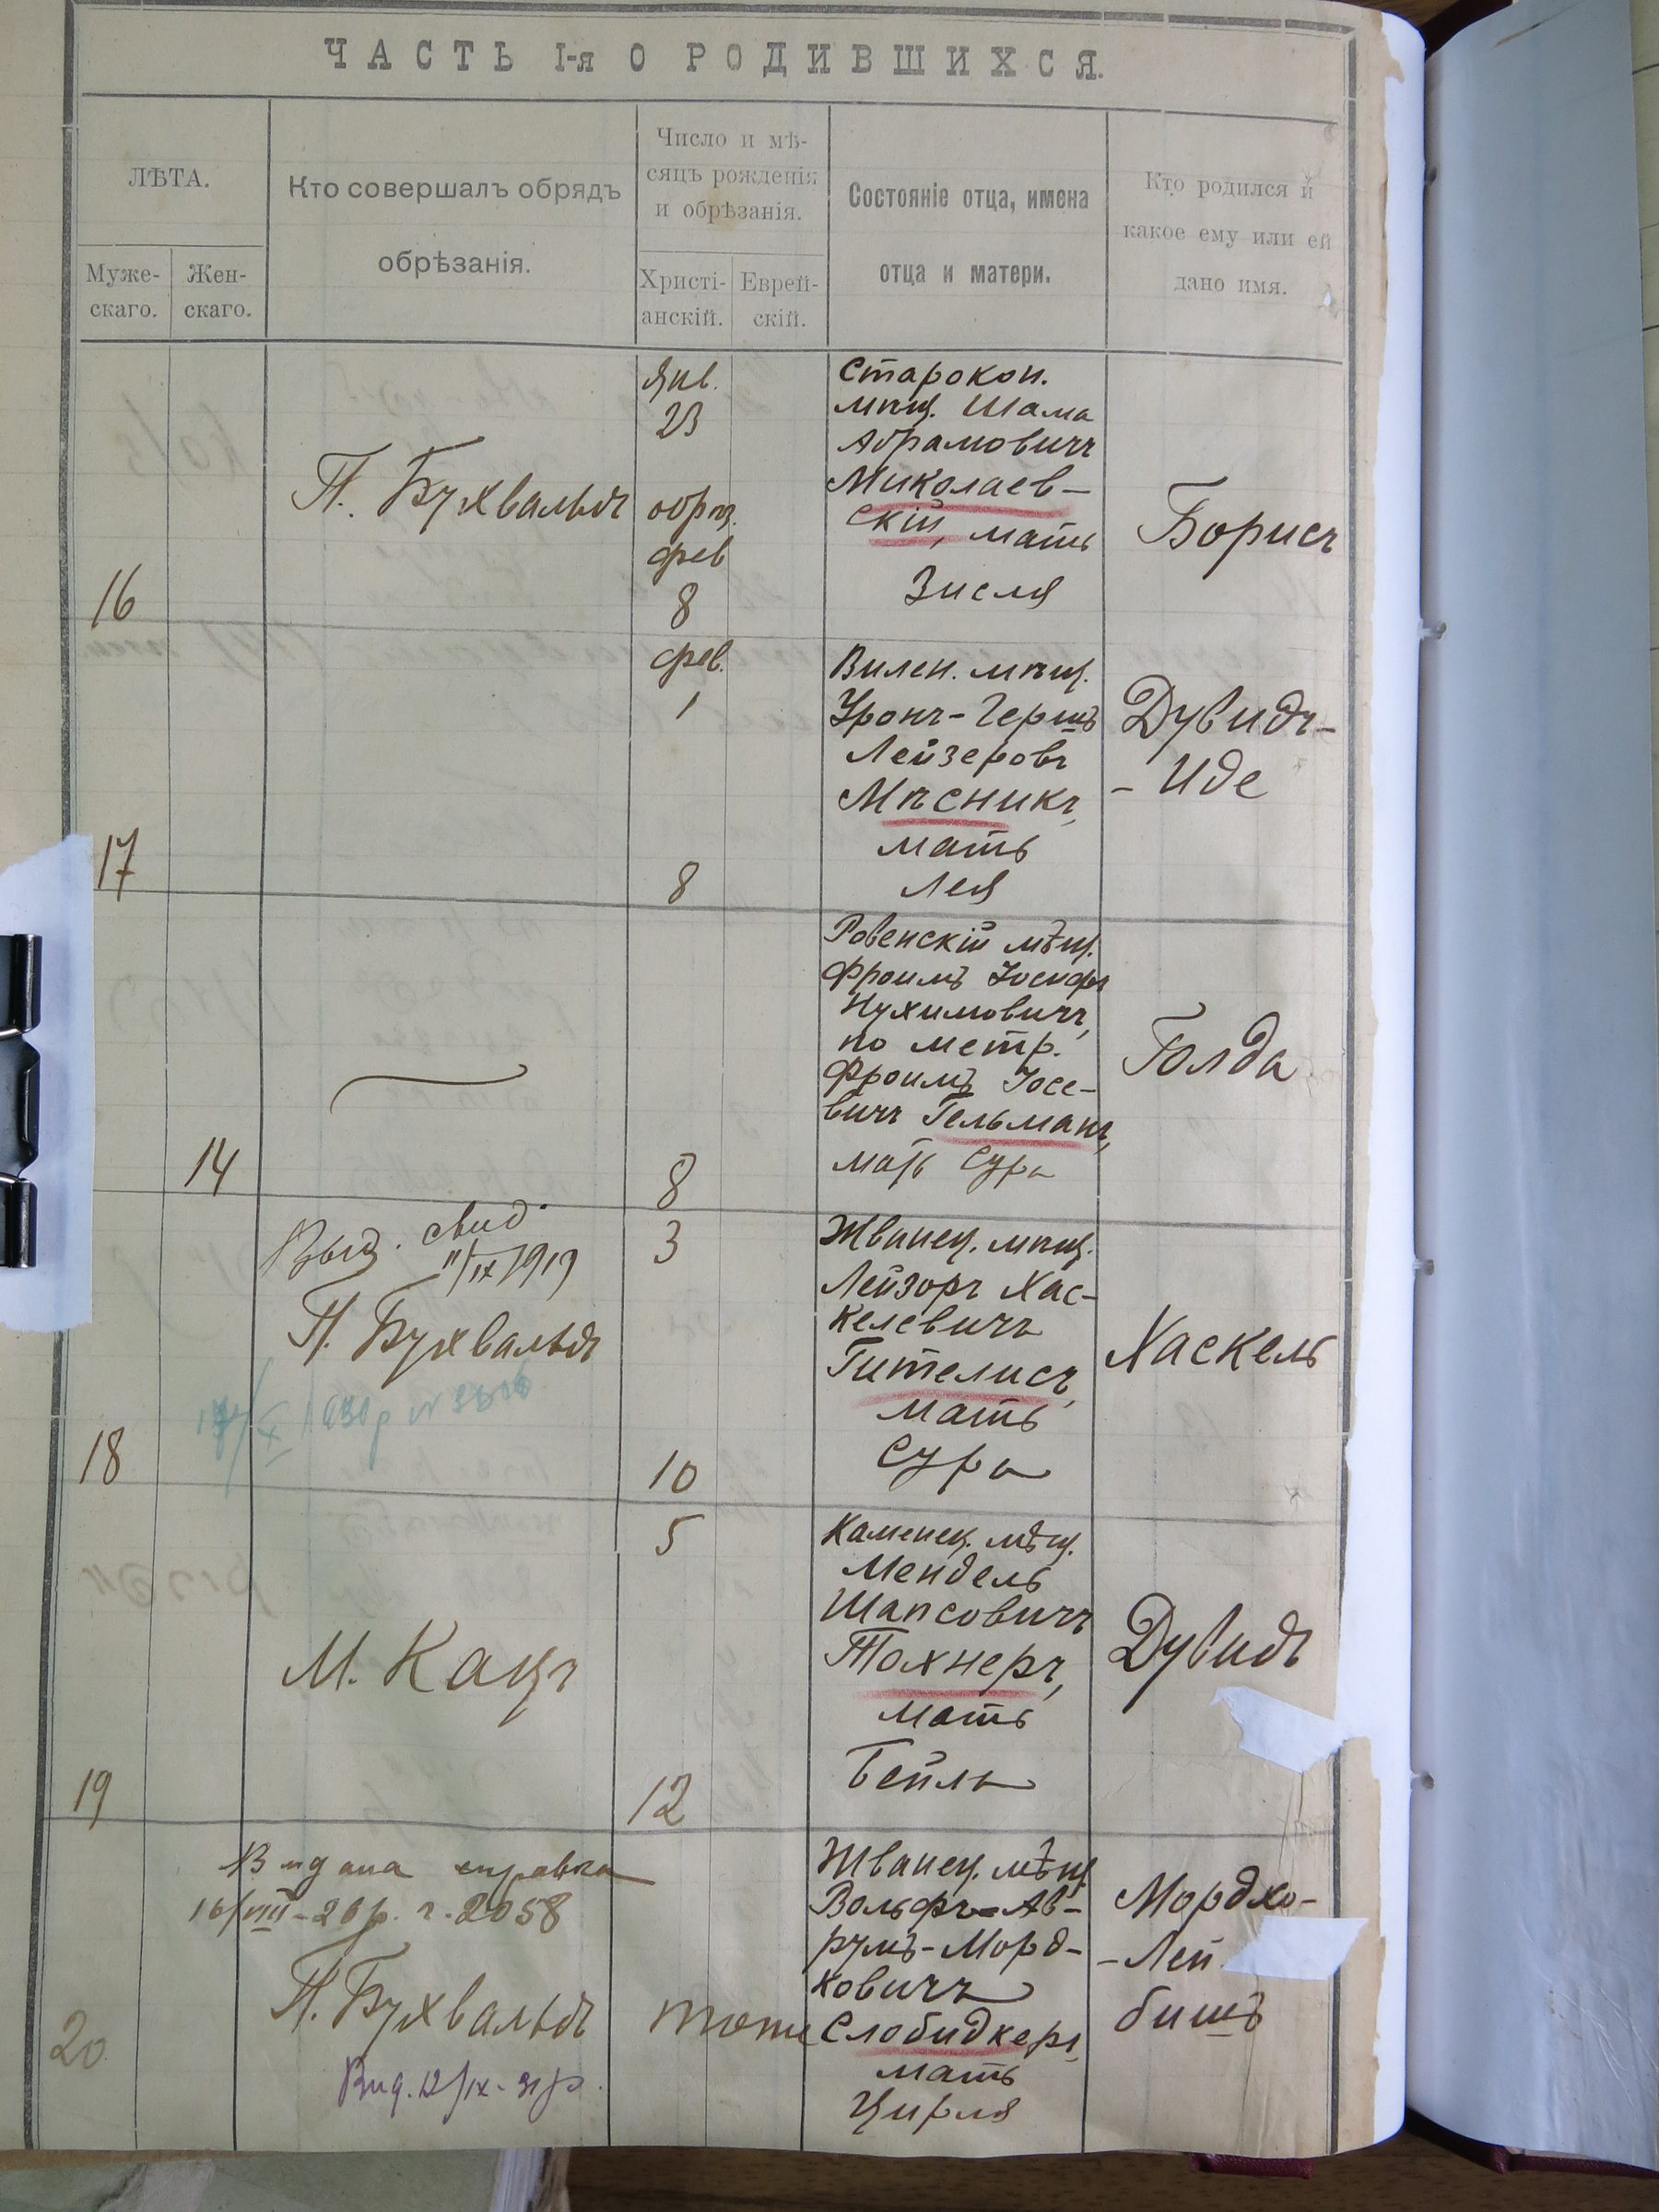 ЧАСТЬ I-я О РОДИВШИХСЯ.
ЛѢТА.
Муже-
скаго.
Жен-
скаго.
Кто совершалъ обрядъ
обрѣзанія.
Число и мѣ-
сяцъ рожденія
и обрѣзанія.
Христі-
анскій.
Еврей-
скій.
Состояніе отца, имена
отца и матери.
Кто родился и
какое ему или ей
дано имя.
16
П. Бухвальдъ
Янв.
23
обрѣз.
фев
8
Старокон.
мѣщ. Шама
Абрамовичъ
Миколаев-
скій, мать
Зисля
Борисъ
17
фев.
1
8
Вилен. мѣщ.
Уронъ-Гершъ
Лейзеровъ
Мѣсникъ,
мать
Лея
Дувидъ-
- Иде
14
8
Ровенскій мѣщ.
Фроимъ Іосифъ
Нухимовичъ,
по метр.
Фроимъ Іосе-
вичъ Гельманъ,
мать Сура
Голда
Выд. свид.
11/IX 1919
П. Бухвальдъ
18
3
10
Жванец. мѣщ.
Лейзоръ Хас-
келевичъ
Гителисъ,
мать
Сура
Хаскель
19
М. Кацъ
5
12
Каменец. мѣщ.
Мендель
Шапсовичъ
Тохнеръ,
мать
Бейла
Дувидъ
Видана справка
16/VIII-20р. ч. 2058
П. Бухвальдъ
Вид. 12/IX-31р.
20
тоже
Жванец. мѣщ.
Вольфъ-Ав-
румъ-Морд-
ковичъ
Слободкеръ,
мать
Цирля
Мордхо-
-Лей
бишъ